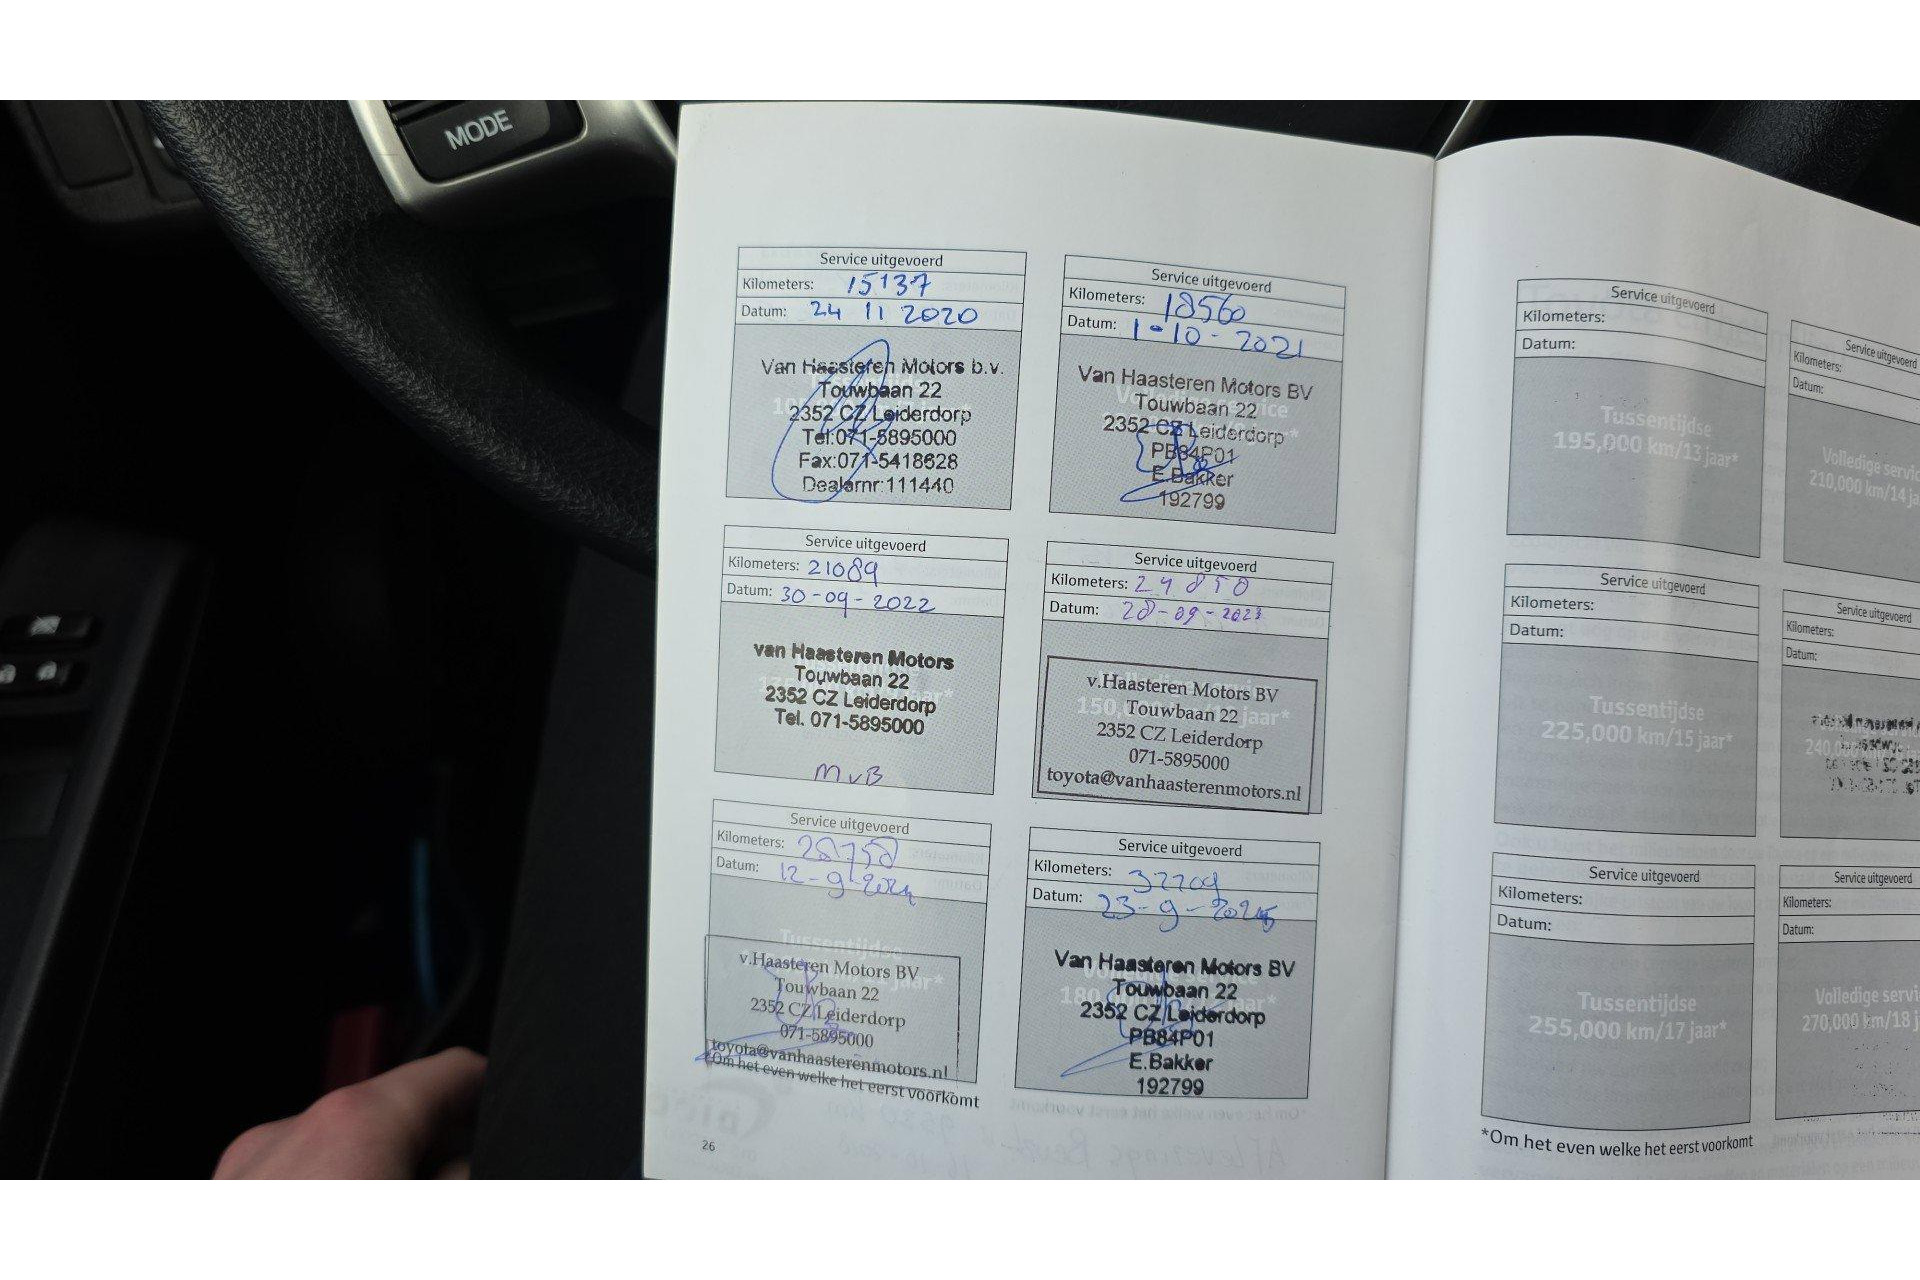 MODE
Service uitgevoerd
Kilometers: 15137
Datum: 24 11 2020
Van Haasteren Motors b.v.
Touwbaan 22
2352 CZ Leiderdorp
Tel:071-5895000
Fax:071-5418628
Dealarnr:111440
Service uitgevoerd
Kilometers: 18560
Datum: 1-10-2021
Volledige service
Van Haasteren Motors BV
Touwbaan 22
2352 CZ Leiderdorp
PB84P01
E.Bakker
192799
Service uitgevoerd
Kilometers: 21089
Datum: 30-09-2022
van Haasteren Motors
Touwbaan 22
2352 CZ Leiderdorp
Tel. 071-5895000
MvB
Service uitgevoerd
Kilometers: 24850
Datum: 28-09-2023
v.Haasteren Motors BV
Touwbaan 22
2352 CZ Leiderdorp
071-5895000
toyota@vanhaasterenmotors.nl
Service uitgevoerd
Kilometers: 28758
Datum: 12-9-2024
Tussentijdse
v.Haasteren Motors BV
Touwbaan 22
2352 CZ Leiderdorp
071-5895000
toyota@vanhaasterenmotors.nl
*Om het even welke het eerst voorkomt
Service uitgevoerd
Kilometers: 32209
Datum: 23-9-2025
Van Haasteren Motors BV
Touwbaan 22
2352 CZ Leiderdorp
PB84P01
E.Bakker
192799
26
Service uitgevoerd
Kilometers:
Datum:
Tussentijdse
195,000 km/13 jaar*
Service uitgevoerd
Kilometers:
Datum:
Volledige servic
210,000 km/14 ja
Service uitgevoerd
Kilometers:
Datum:
Tussentijdse
225,000 km/15 jaar*
Service uitgevoerd
Kilometers:
Datum:
Service uitgevoerd
Kilometers:
Datum:
Tussentijdse
255,000 km/17 jaar*
Service uitgevoerd
Kilometers:
Datum:
Volledige servi
270,000 km/18 j
*Om het even welke het eerst voorkomt